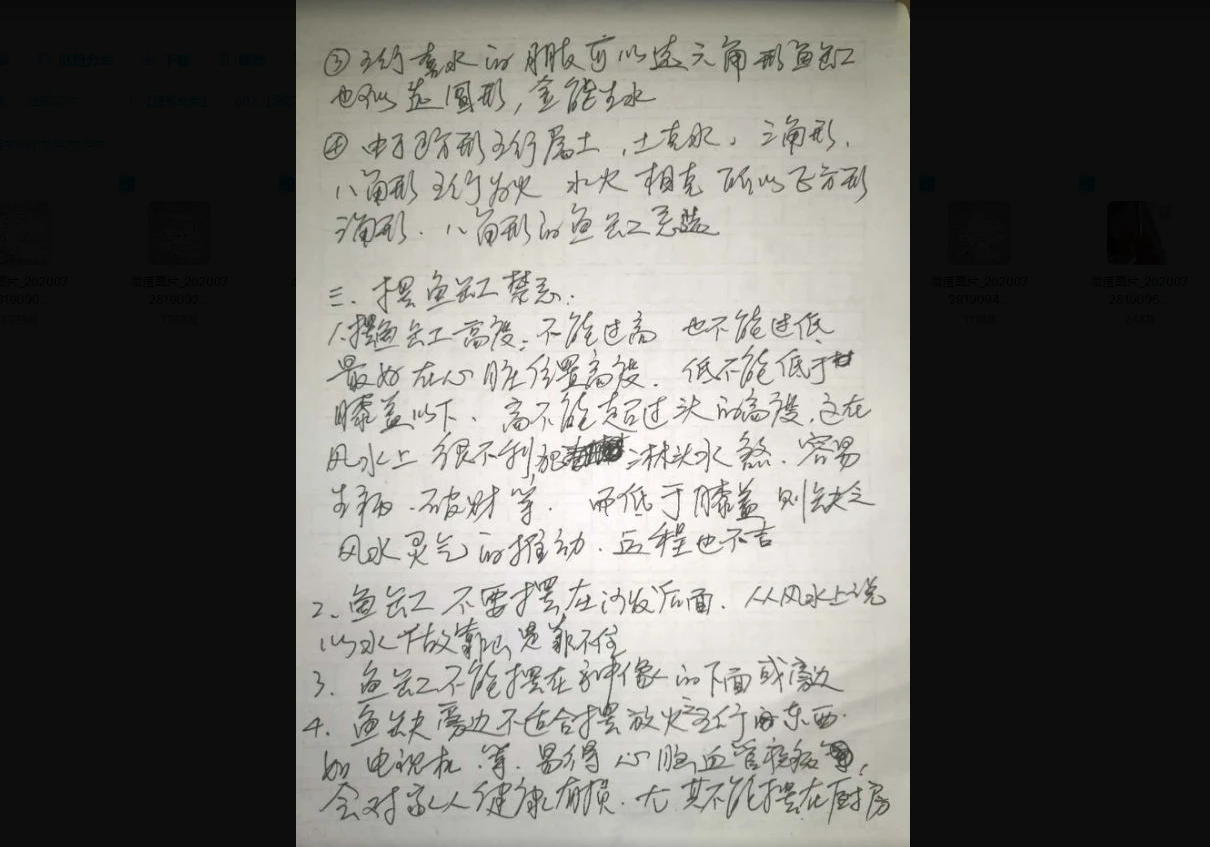 ③ 五行喜水的朋友可以选六角形鱼缸
也可以选圆形，金能生水
④ 由于正方形五行属土，土克水。三角形.
八角形五行为火 水火相克 所以正方形
三角形.八角形的鱼缸忌选
三.摆鱼缸禁忌.
1.摆鱼缸高度:不能过高 也不能过低
最好在心脏位置高度.低不能低于
膝盖以下、高不能超过头的高度.这在
风水上很不利,犯淋头水煞.容易
生病.破财等. 而低于膝盖则缺乏
风水灵气的推动.运程也不吉
2、鱼缸不要摆在沙发后面.从风水上说
以水做靠山是靠不住
3.鱼缸不能摆在神像的下面或旁边
4.鱼缸旁边不适合摆放火五行的东西.
如电视机.等.易得心脑血管疾病,
会对家人健康有损.尤其不能摆在厨房